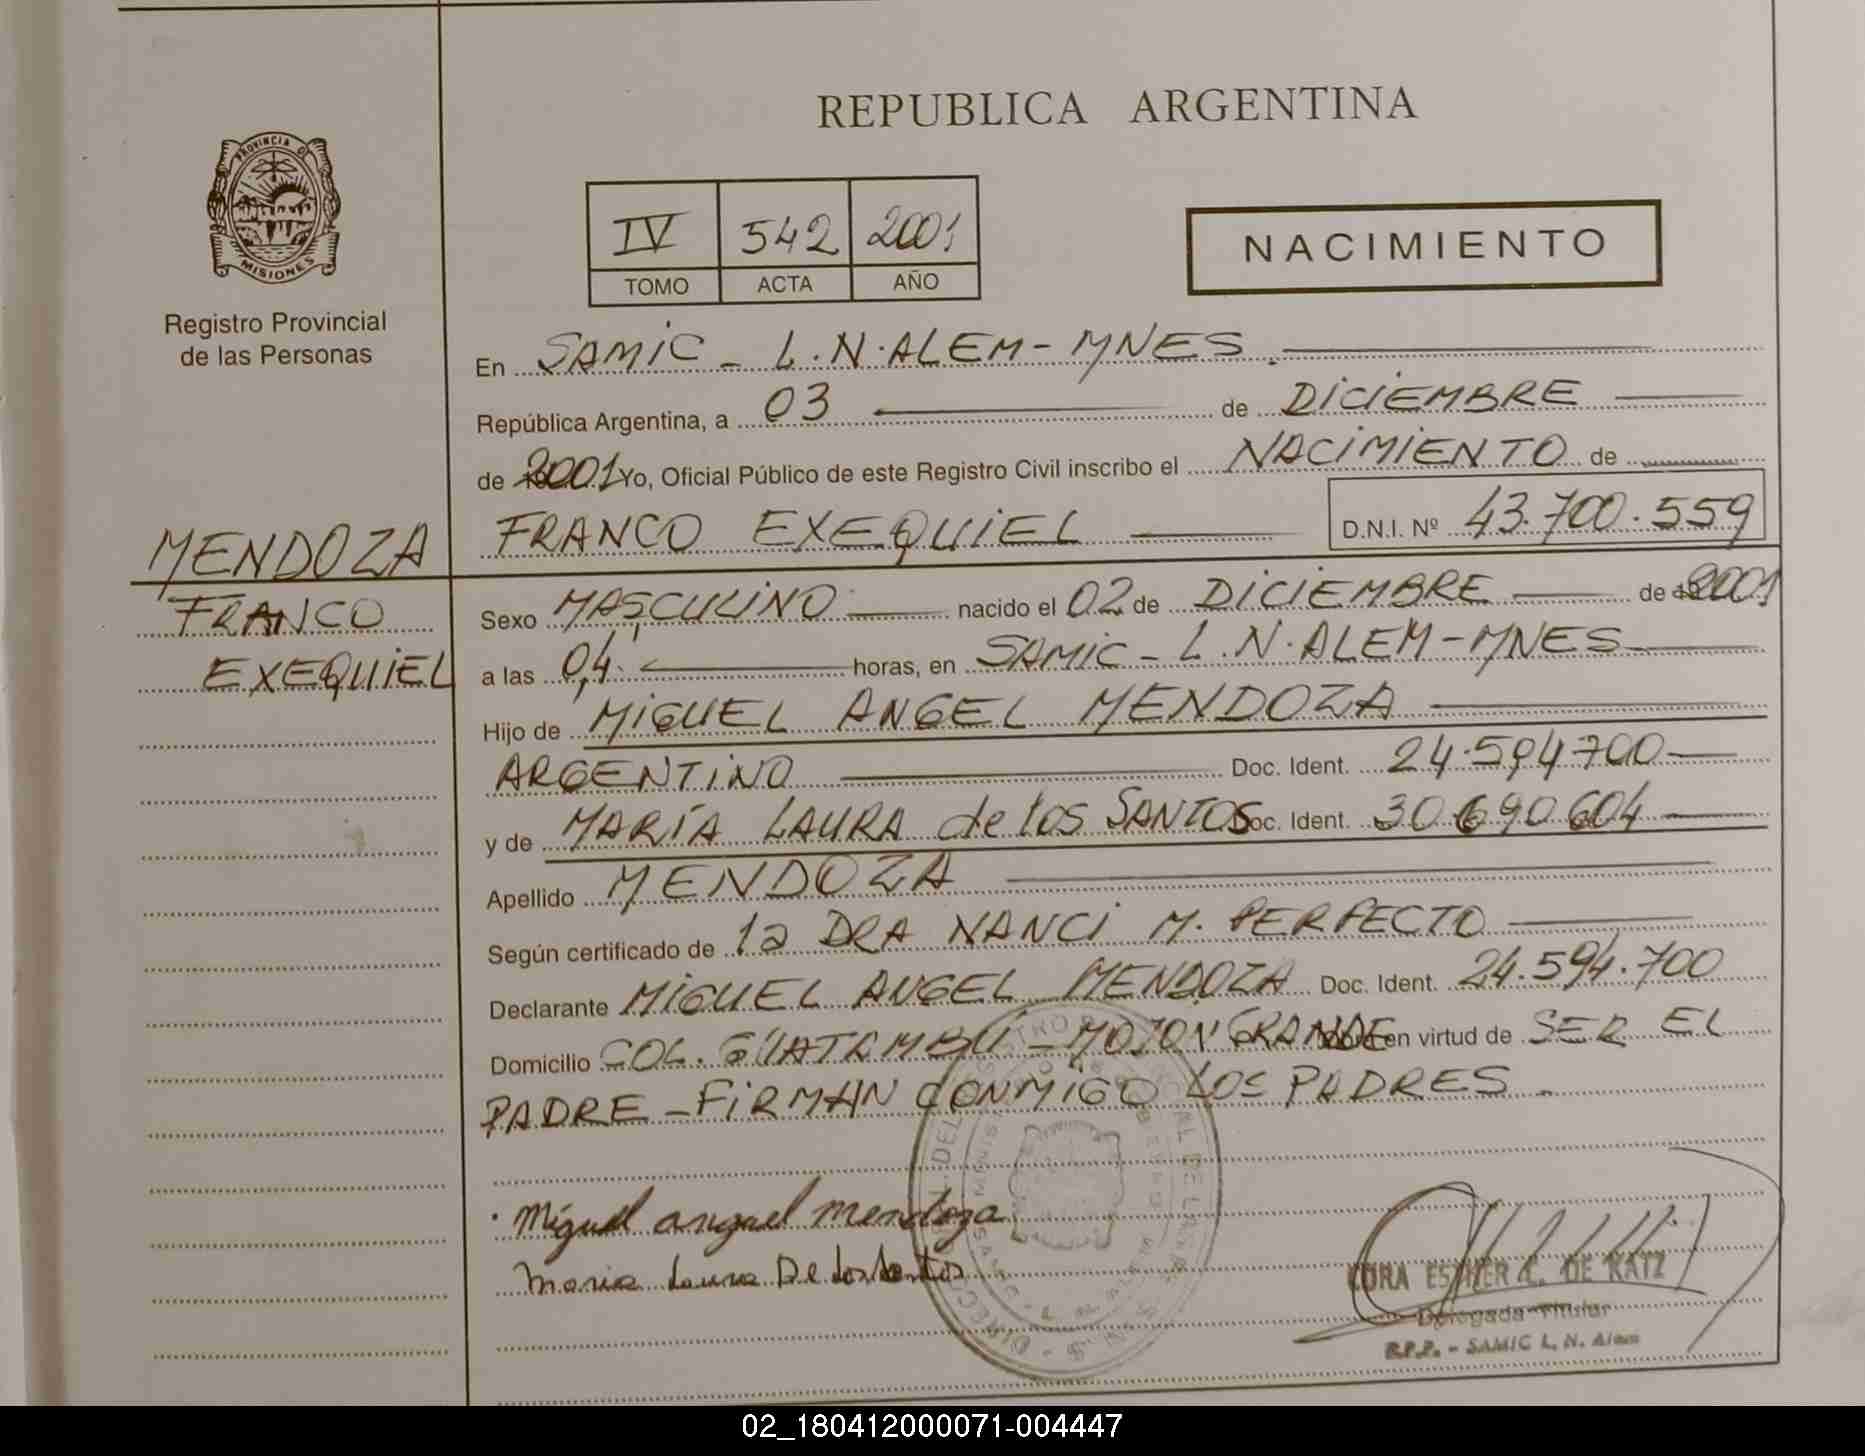 REPUBLICA ARGENTINA
PROVINCIA DE
MISIONES
Registro Provincial
de las Personas
IV 542 2001
TOMO ACTA AÑO
NACIMIENTO
En SAMIC - L.N. ALEM - MNES.
República Argentina, a 03 de DICIEMBRE
de 2001 Yo, Oficial Público de este Registro Civil inscribo el NACIMIENTO de
FRANCO EXEQUIEL D.N.I. Nº 43.700.559
MENDOZA
FRANCO
EXEQUIEL
Sexo MASCULINO nacido el 02 de DICIEMBRE de 2001
a las 04 horas, en SAMIC - L.N. ALEM - MNES
Hijo de MIGUEL ANGEL MENDOZA
ARGENTINO Doc. Ident. 24.594700
y de MARÍA LAURA de los SANTOS Doc. Ident. 30.690.604
Apellido MENDOZA
Según certificado de la DRA NANCI M. PERFECTO
Declarante MIGUEL ANGEL MENDOZA Doc. Ident. 24.594.700
Domicilio COL. GUATAMBÚ - MOJON GRANDE en virtud de SER EL
PADRE - FIRMAN CONMIGO LOS PADRES.
Miguel anguel mendoza
Maria Laura De los
ESTHER C. DE KATZ
Delegada Titular
R.P.P. - SAMIC L. N. Alem
02_180412000071-004447